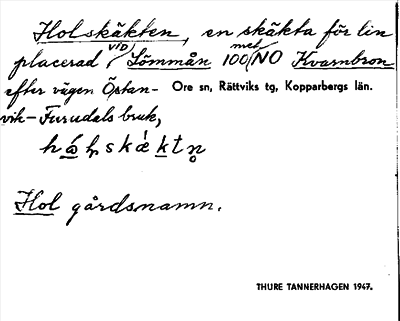 Holskäkten, en skäkta för lin
placerad vid Lömmån 100 met NO Kvarnbron
efter vägen Östan-
Ore sn, Rättviks tg, Kopparbergs län.
vik-Furudals bruk,
Hol gårdsnamn.
THURE TANNERHAGEN 1947.